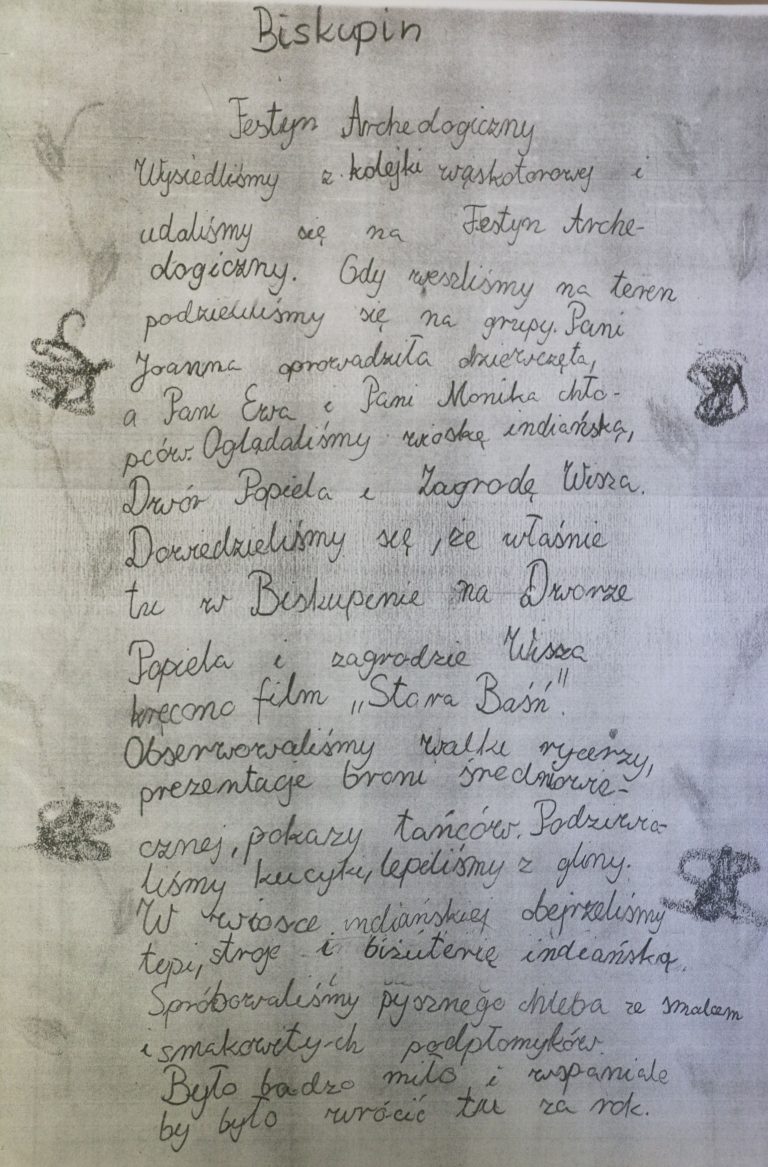 Biskupin
Festyn Archeologiczny
Wysiedliśmy z kolejki wąskotorowej i
udaliśmy się na Festyn Arche-
ologiczny. Gdy weszliśmy na teren
podzieliliśmy się na grupy. Pani
Joanna oprowadziła dziewczęta,
a Pani Ewa i Pani Monika chło-
pców. Oglądaliśmy wioskę indiańską,
Dwór Popiela i Zagrodę Wisza.
Dowiedzieliśmy się, że właśnie
tu w Biskupinie na Dworze
Popiela i zagrodzie Wisza
kręcono film „Stara Baśń".
Obserwowaliśmy walki rycerzy,
prezentacje broni średniowie-
cznej, pokazy tańców. Podziwia-
liśmy kucyki, lepiliśmy z gliny.
W wiosce indiańskiej obejrzeliśmy
tipi, stroje i biżuterię indiańską.
Spróbowaliśmy pysznego chleba ze smalcem
i smakowitych podpłomyków.
Było badzo miło i wspaniale
by było wrócić tu za rok.